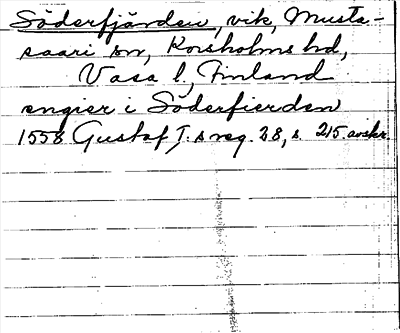 Söderfjärden, vik, Musta-
saari sn, Korsholms hd,
Vasa l, Finland
engier i Söderfierden
1558 Gustaf I.s reg. 28, s. 215 avskr.